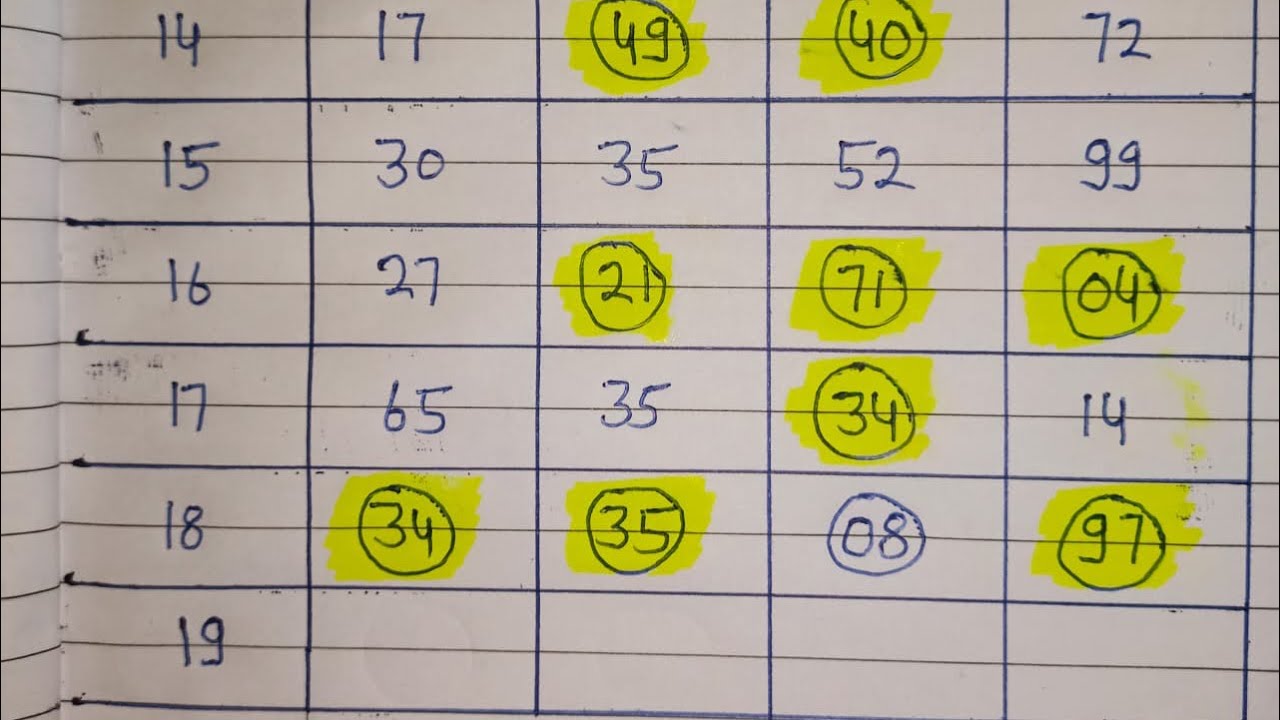 14 17 49 40 72
15 30 35 52 99
16 27 21 71 04
17 65 35 34 14
18 34 35 08 97
19